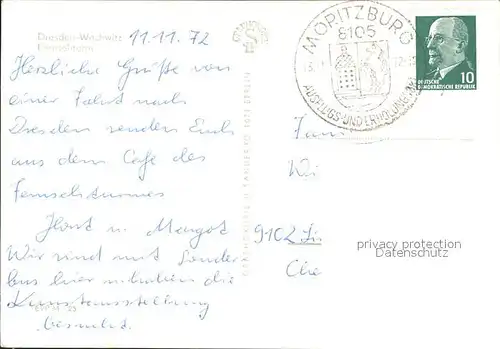 Dresden-Wachwitz
Fernsehturm
11.11.72
Herzliche Grüße von
einer Fahrt nach
Dresden senden Euch
aus dem Cafe des
Fernsehturmes
Horst u. Margot
Wir sind mit Sonder
bus hier u. haben die
Kunstausstellung
besucht.
MORITZBURG
8105
AUSFLUGS- UND ERHOLUNGSORT
10
DEUTSCHE
DEMOKRATISCHE REPUBLIK
Fam
Wi
9102 Li
Che
privacy protection
Datenschutz